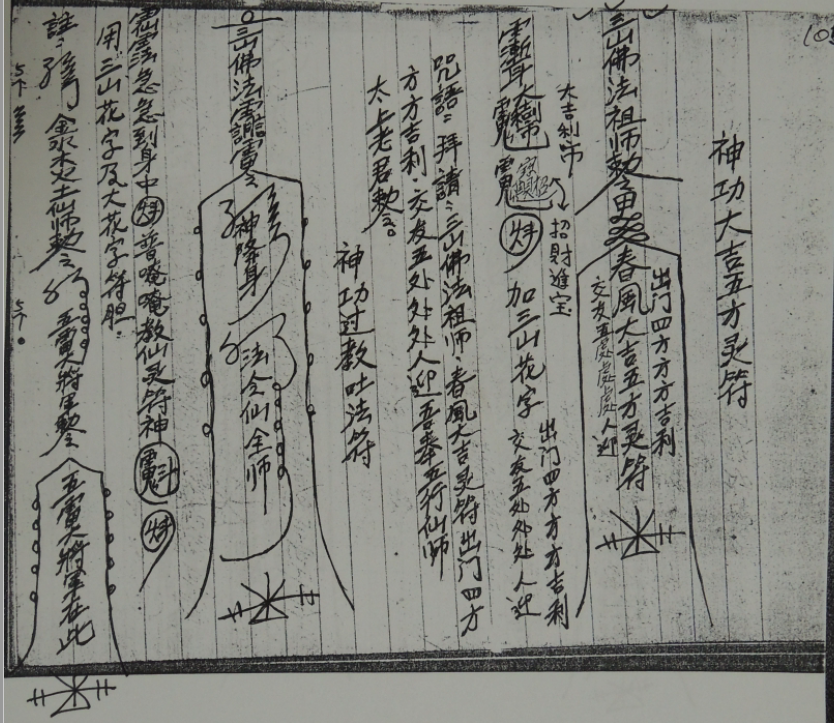 105
神功大吉五方灵符
三山佛法祖师敕令
春風大吉五方灵符
出门四方方方吉利
交友五處處處人迎
大吉利市
招財進宝
加三山花字
出门四方方方吉利
交友五处处处人迎
咒語：拜請：三山佛法祖师，春風大吉灵符出门四方
方方吉利，交友五处处处人迎吾奉五行仙师
太上老君敕令。
神功过教吐法符
三山佛法
神降身
法令仙全师
急急到身中 普唵唵教仙灵符神
用三山花字及大花字符胆。
註：
金水火土仙师敕令
五雷大將军敕令
五雷大將军在此